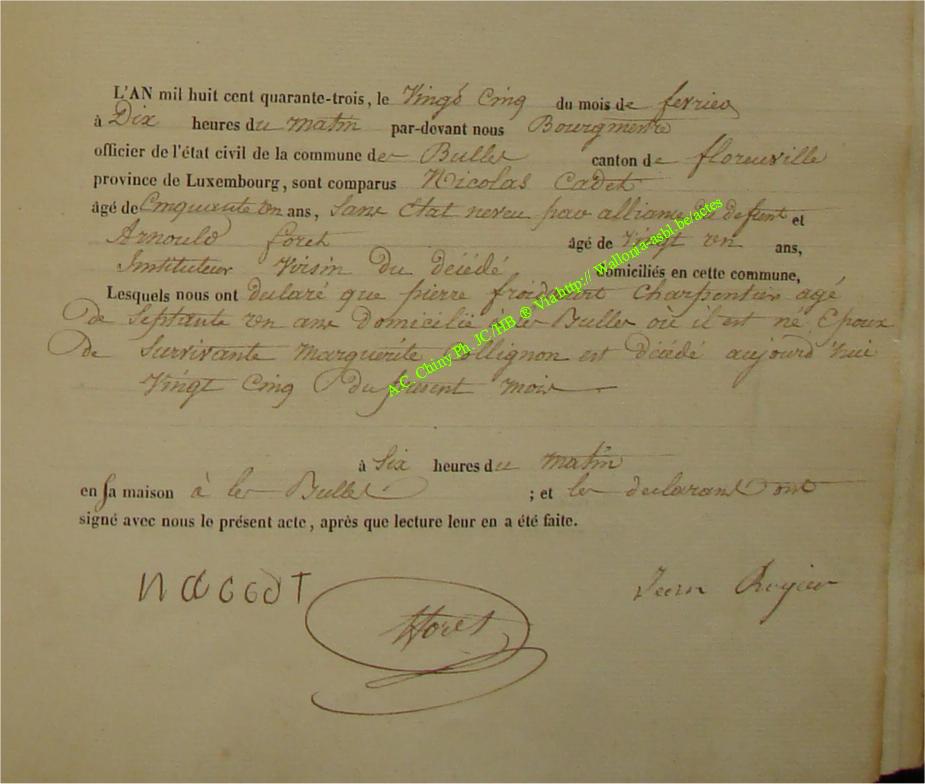 L'AN mil huit cent quarante-trois, le Vingt Cinq du mois de fevrier
à Dix heures du matin par-devant nous Bourgmestre
officier de l'état civil de la commune des Bulles canton de florenville
province de Luxembourg, sont comparus Nicolas Cadet
âgé de Cinquante un ans, Sans Etat neveu par alliance du defunt et
Arnould foret âgé de Vingt un ans,
Instituteur Voisin du décédé domiciliés en cette commune,
Lesquels nous ont declaré que pierre froidcourt Charpentier agé
de Septante un ans domicilié à les Bulles où il est né Epoux
de Survivante Marguerite Collignon est décédé aujourd'hui
Vingt Cinq du present mois
à Six heures du matin
en sa maison à les Bulles ; et les declarans ont
signé avec nous le présent acte, après que lecture leur en a été faite.
Jean
A.C. Chiny Ph. JC/HB ® Via http:// Wallonia-asbl.be/actes